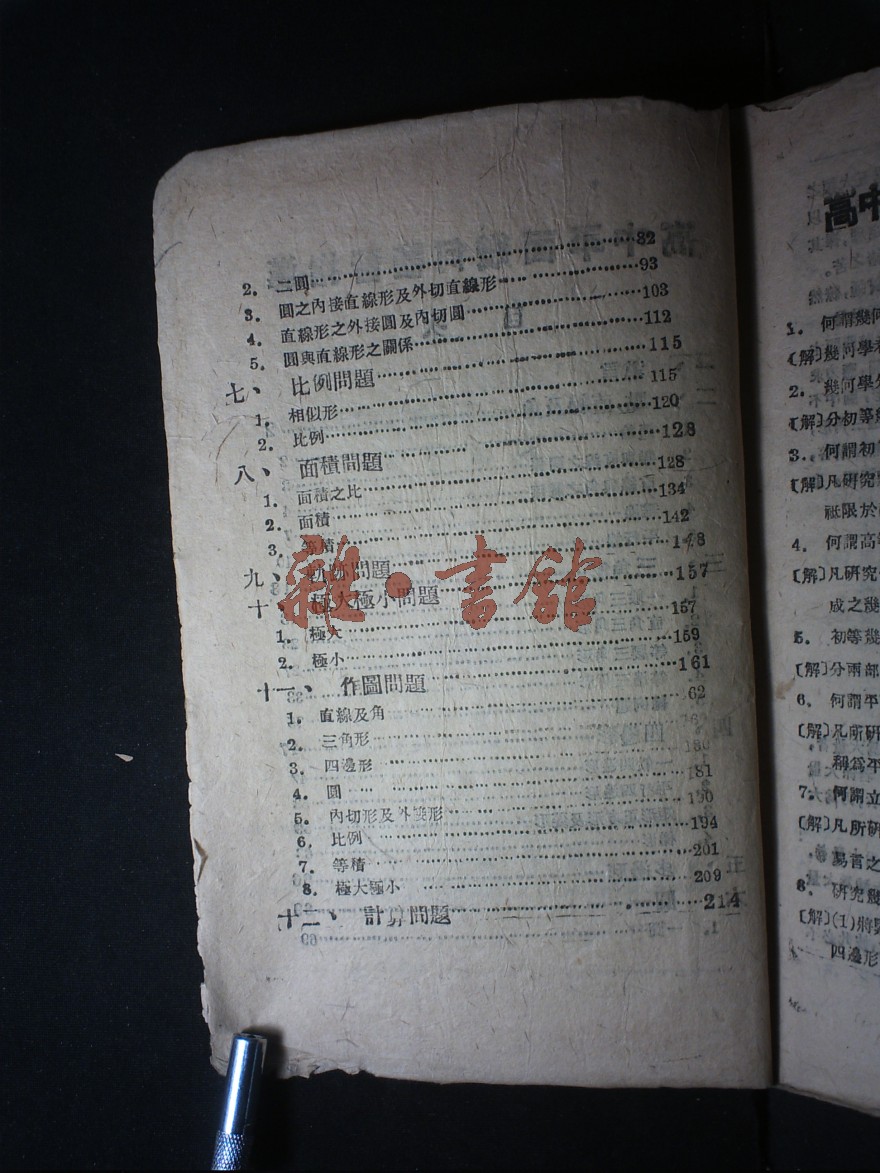 2. 二圓……82
3. 圓之內接直線形及外切直線形……93
4. 直線形之外接圓及內切圓……103
5. 圓與直線形之關係……112
七、 比例問題……115
1. 相似形……115
2. 比例……120
八、 面積問題……128
1. 面積之比……128
2. 面積……134
3. 等積……142
九、 軌跡問題……148
十、 極大極小問題……157
1. 極大……157
2. 極小……159
十一、 作圖問題……161
1. 直線及角……62
2. 三角形……
3. 四邊形……180
4. 圓……181
5. 內切形及外接形……190
6. 比例……194
7. 等積……201
8. 極大極小……209
十二、 計算問題……214
雜·書館
高中
1. 何謂幾何
〔解〕幾何學
2. 幾何學分
〔解〕分初等幾
3. 何謂初
〔解〕凡研究
祗限於
4. 何謂高
〔解〕凡研究
成之幾
5. 初等幾
〔解〕分兩部
6. 何謂平
〔解〕凡所研
稱爲平
7. 何謂立
〔解〕凡所研
易言之
8. 研究幾
〔解〕(1)將
四邊形